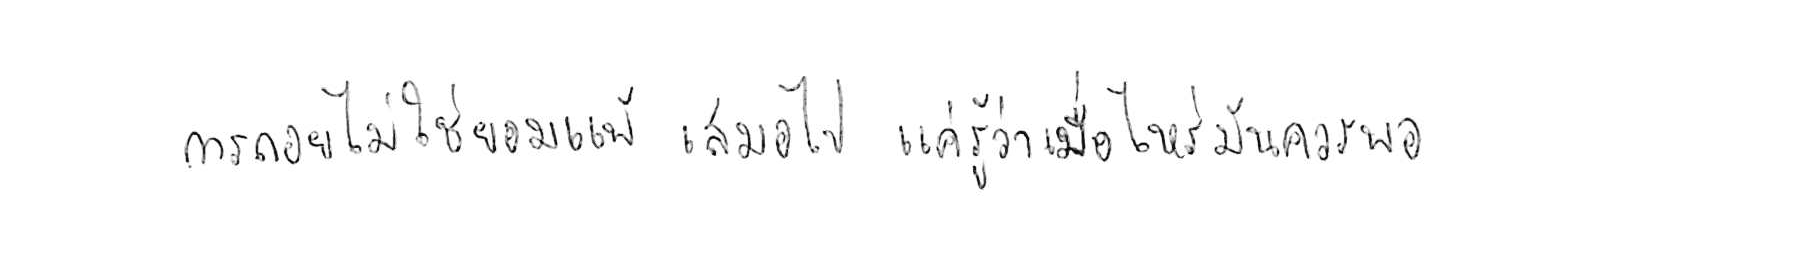 การถอยไม่ใช่ยอมแพ้ เสมอไป แค่รู้ว่าเมื่อไหร่มันควรพอ